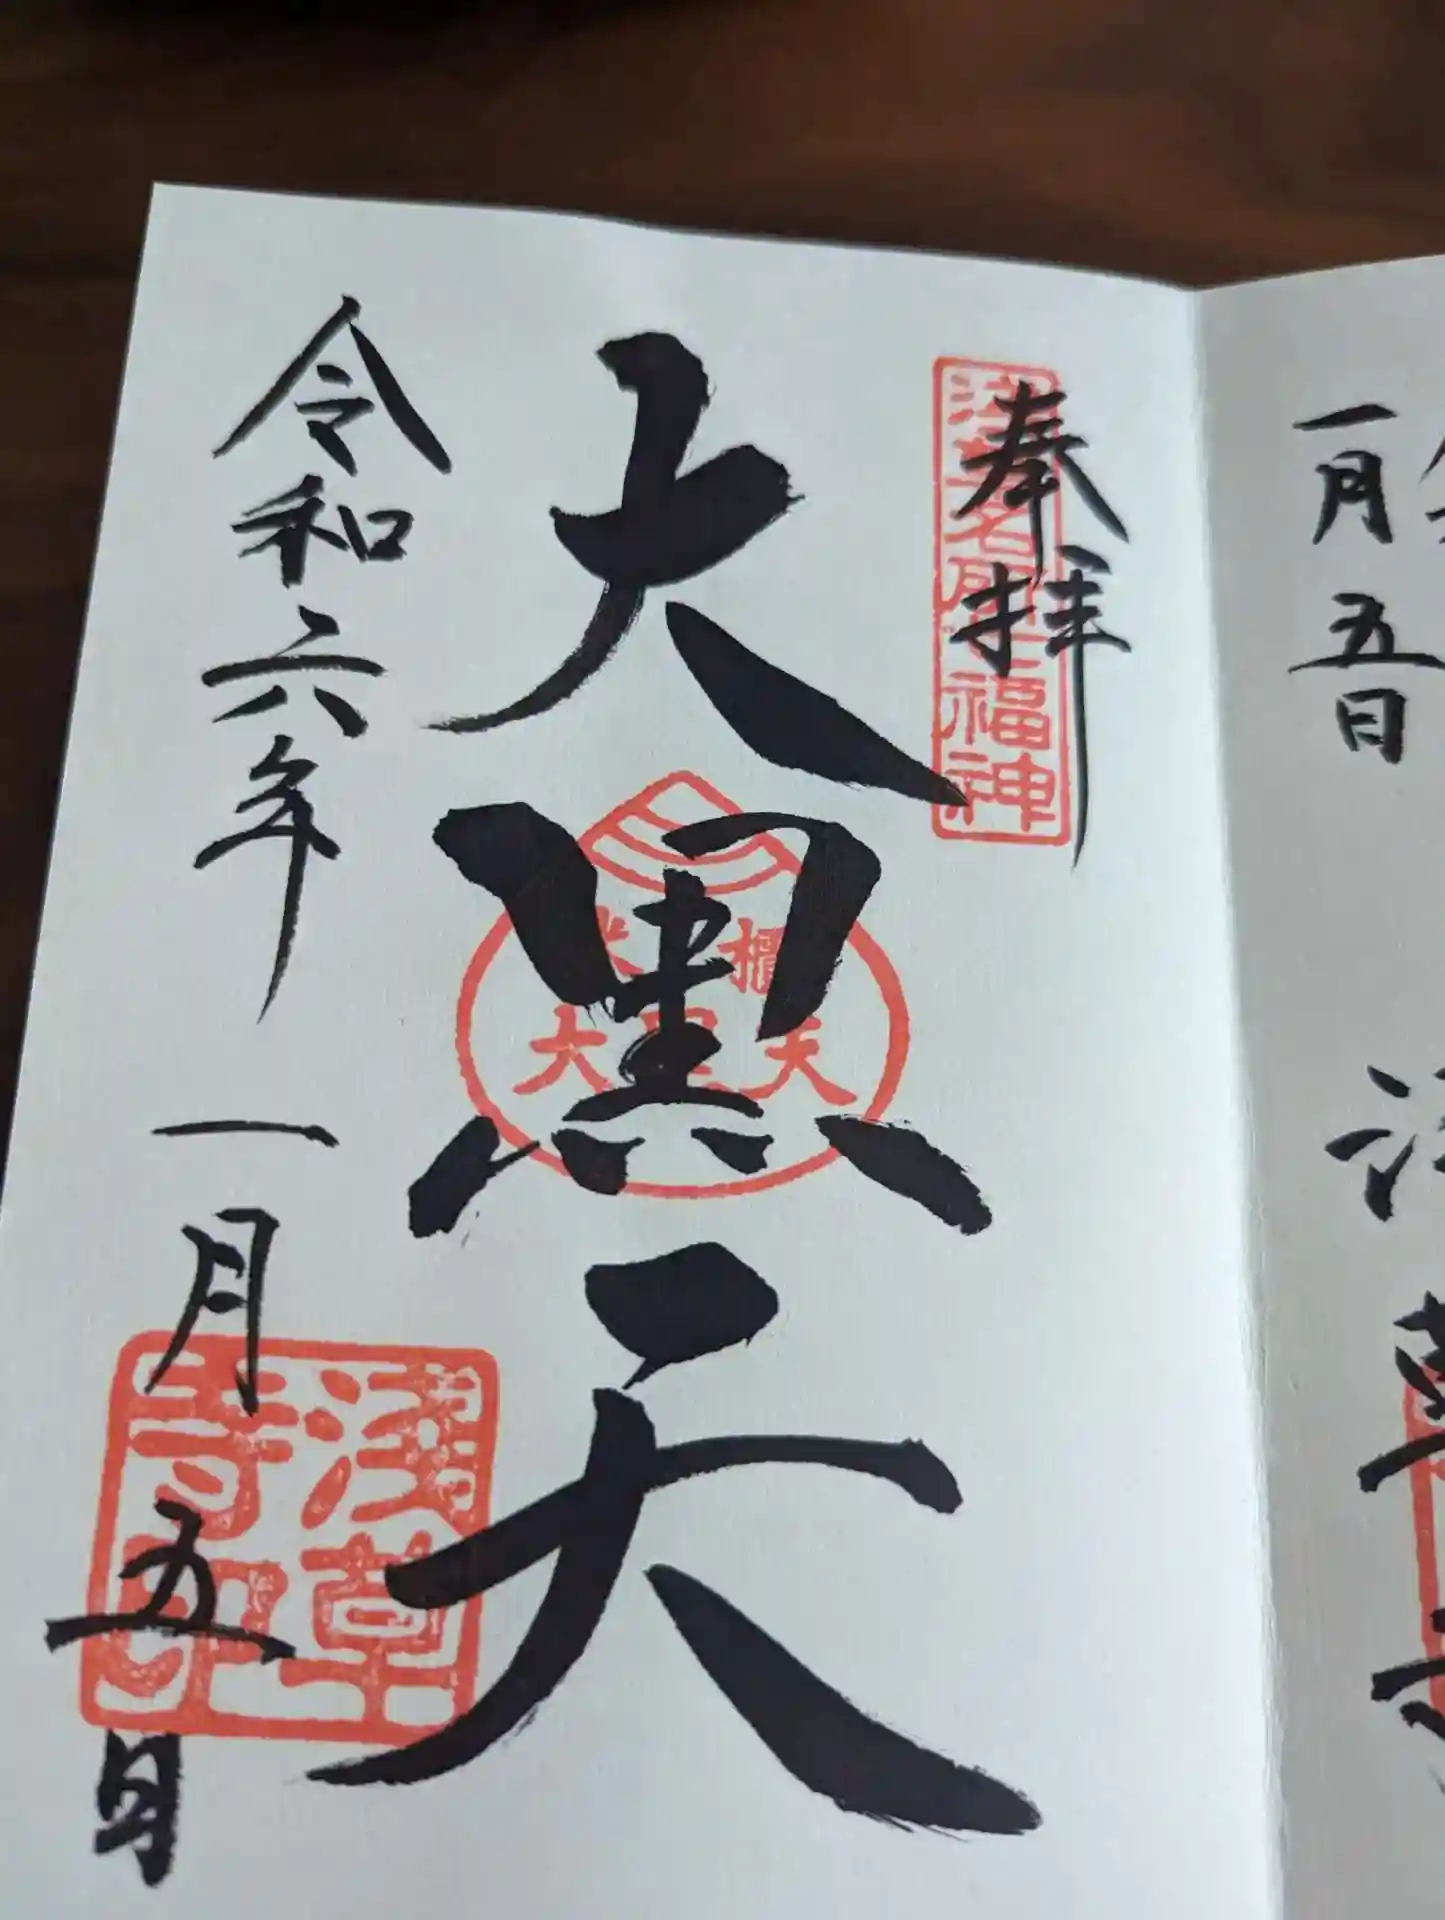 一月五日
浅草寺
奉拝
浅草名所七福神
大黒天
米櫃
大黒天
令和六年一月五日
浅草
寺印